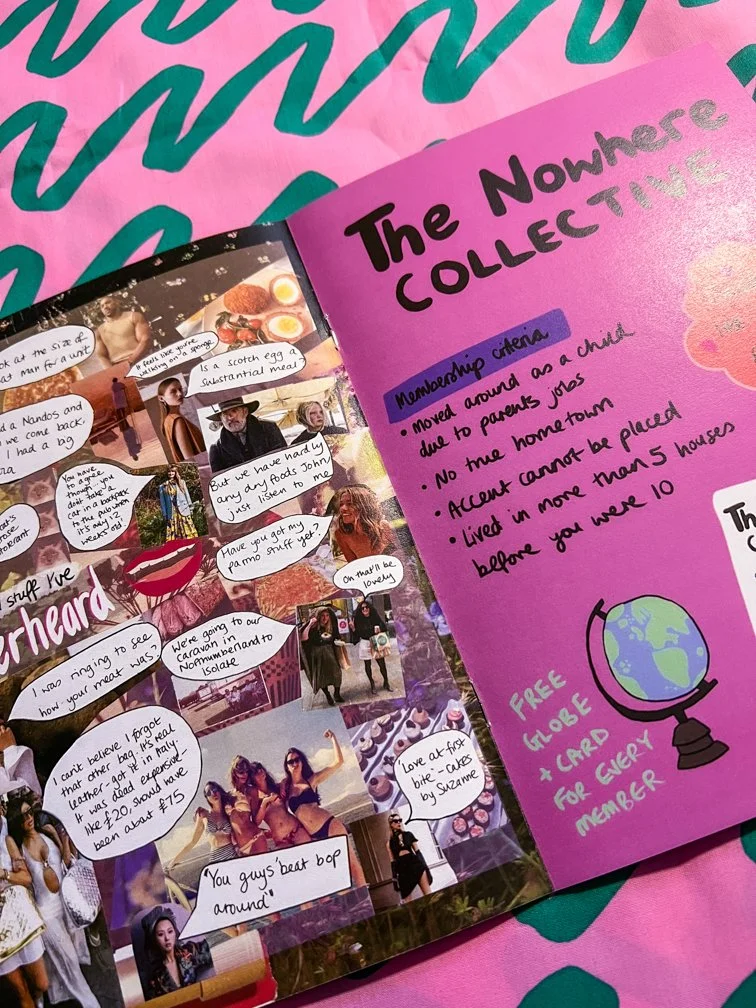 ok at the size of
at man for a unit
It feels like you're
walking on a sponge
Is a scotch egg a
substantial meal?
d a Nandos and
we come back.
I had a big
You have
to agree
though - you
don't take a
cat in a backpack
to the pub when
it's only 12
weeks old!
But we have hardly
any dry foods John
just listen to me
Have you got my
parmo stuff yet?
stuff I've
erheard
Oh that'll be
lovely
I was ringing to see
how your meat was?
We're going to our
caravan in
Northumberland to
isolate
I can't believe I forgot
that other bag. It's real
leather - got it in Italy.
It was dead expensive -
like £20, should have
been about £75
'Love at first
bite' - cakes
by Suzanne
"You guys 'beat bop
around"
The Nowhere
COLLECTIVE
Membership criteria
• Moved around as a child
due to parents jobs
• No true hometown
• Accent cannot be placed
• Lived in more than 5 houses
before you were 10
FREE
GLOBE
+ CARD
FOR EVERY
MEMBER